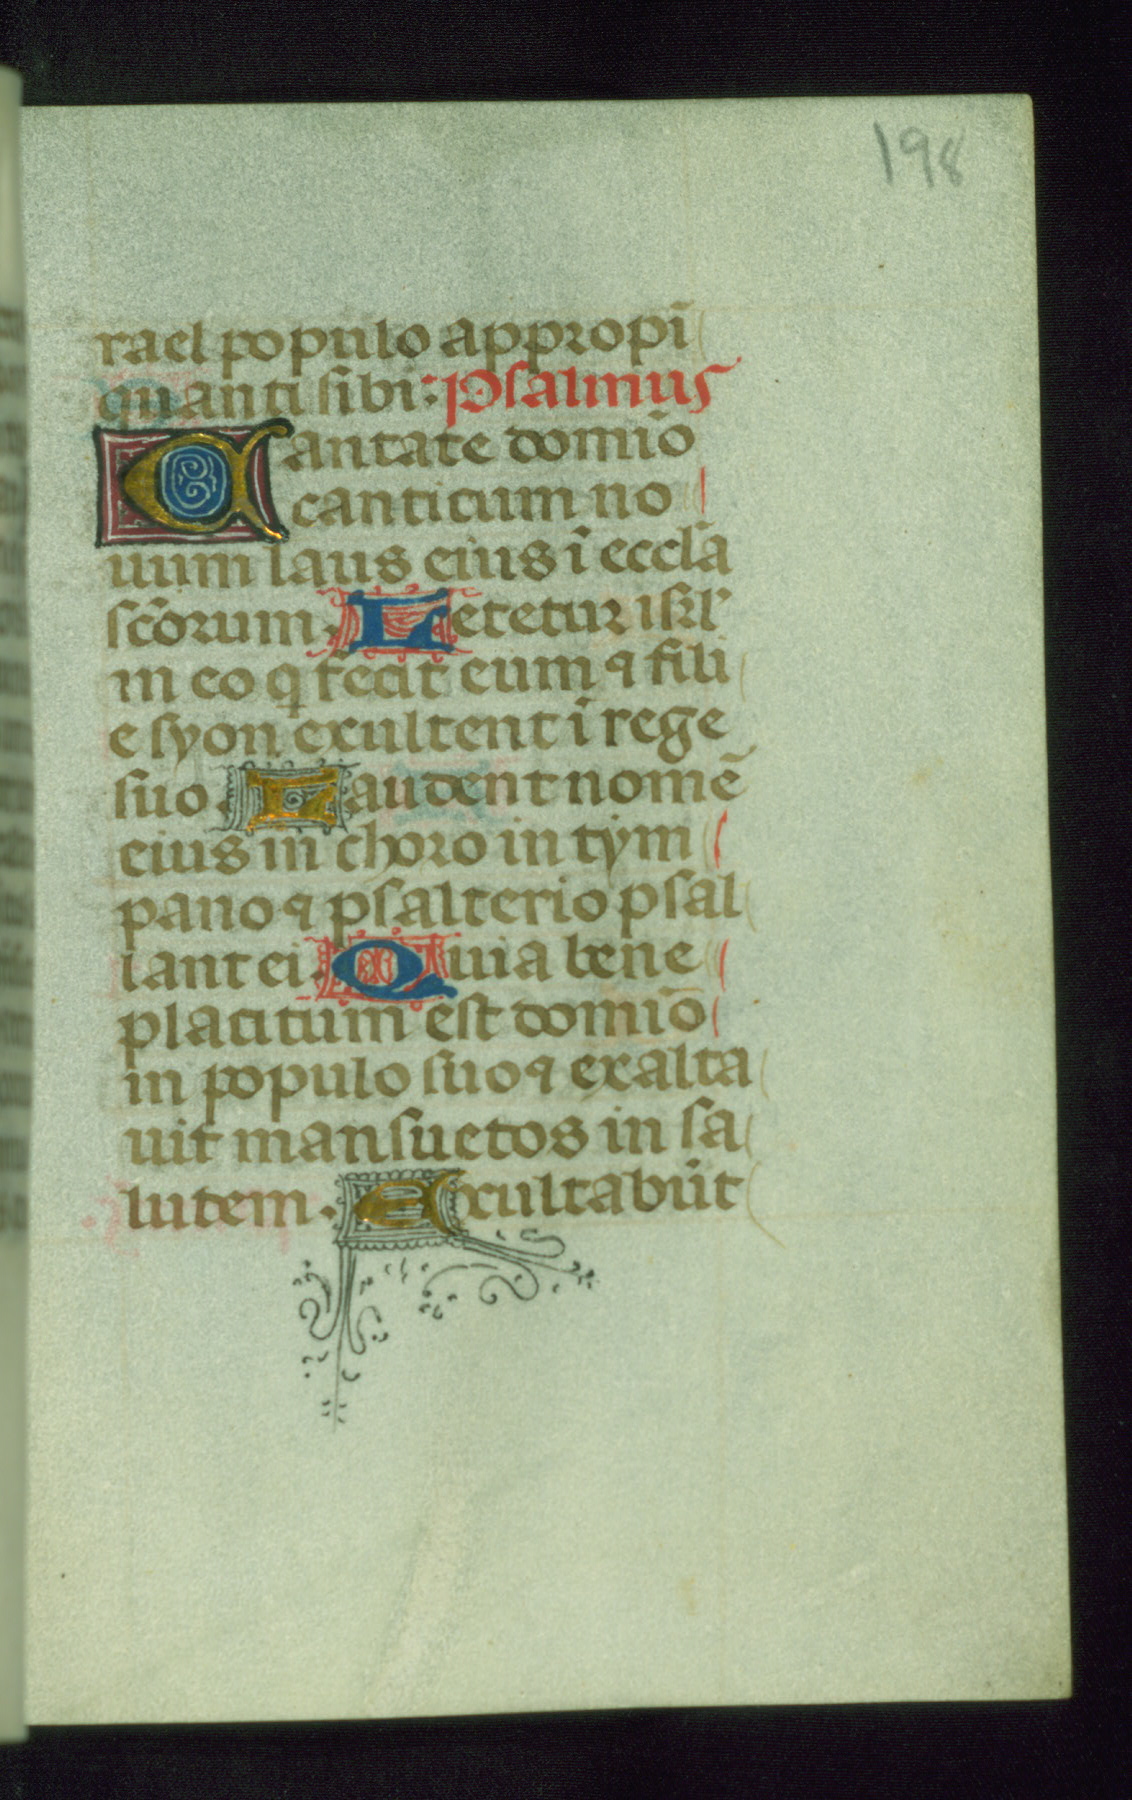 198
rael populo appropī
quanti sibi: Psalmus
Cantate domīo
canticum no
uum laus eius ī eccľa
sc̄orum. Letetur isrľ
in eo q̄ fecit eum ⁊ fili
e syon exultent ī rege
suo. Laudent nomē
eius in choro in tẏm
pano ⁊ psalterio psal
lant ei. Quia bene
placitum est domīo
in populo suo ⁊ exalta
uit mansuetos in sa
lutem. Exultabūt